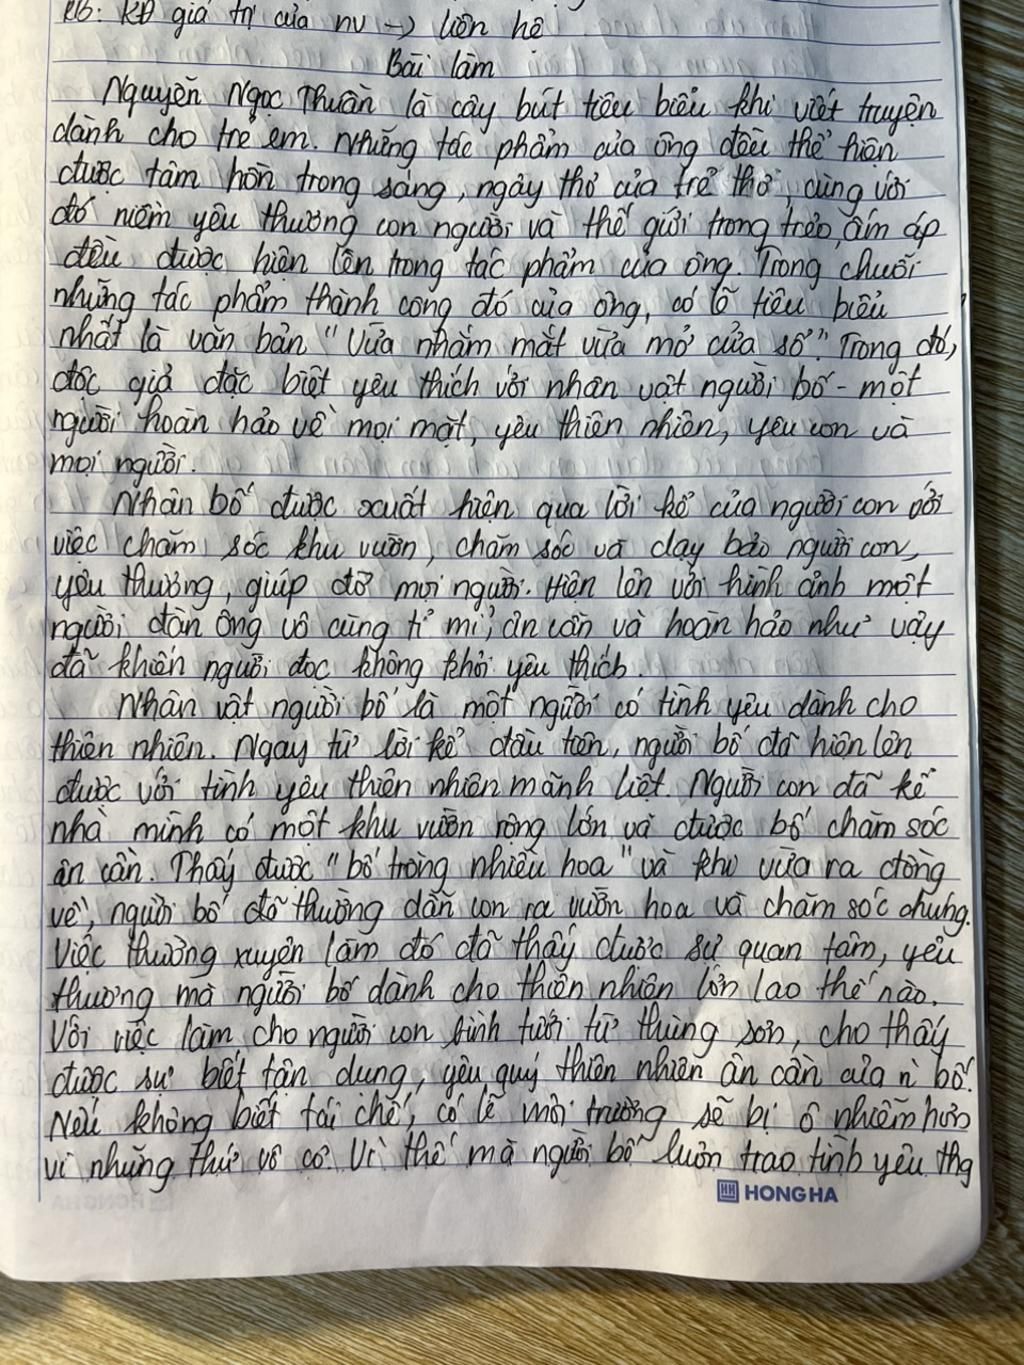 KB: KĐ giá trị của nv → liên hệ
Bài làm
Nguyễn Ngọc Thuần là cây bút tiêu biểu khi viết truyện
dành cho trẻ em. Những tác phẩm của ông đều thể hiện
được tâm hồn trong sáng, ngây thơ của trẻ thơ, cùng với
đó niềm yêu thương con người và thế giới trong trẻo, ấm áp
đều được hiện lên trong tác phẩm của ông. Trong chuỗi
những tác phẩm thành công đó của ông, có lẽ tiêu biểu
nhất là văn bản "Vừa nhắm mắt vừa mở cửa sổ". Trong đó,
độc giả đặc biệt yêu thích với nhân vật người bố - một
người hoàn hảo về mọi mặt, yêu thiên nhiên, yêu con và
mọi người.
Nhân bố được xuất hiện qua lời kể của người con với
việc chăm sóc khu vườn, chăm sóc và dạy bảo người con,
yêu thương, giúp đỡ mọi người. Hiện lên với hình ảnh một
người đàn ông vô cùng tỉ mỉ, ân cần và hoàn hảo như vậy
đã khiến người đọc không khỏi yêu thích.
Nhân vật người bố là một người có tình yêu dành cho
thiên nhiên. Ngay từ lời kể đầu tiên, người bố đã hiện lên
được với tình yêu thiên nhiên mãnh liệt. Người con đã kể
nhà mình có một khu vườn rộng lớn và được bố chăm sóc
ân cần. Thấy được "bố trồng nhiều hoa" và khi vừa ra đồng
về, người bố đã thường dẫn con ra vườn hoa và chăm sóc chúng.
Việc thường xuyên làm đó đã thấy được sự quan tâm, yêu
thương mà người bố dành cho thiên nhiên lớn lao thế nào.
Với việc làm cho người con bình tưới từ thùng sơn, cho thấy
được sự biết tận dụng, yêu quý thiên nhiên ân cần của n' bố.
Nếu không biết tái chế, có lẽ môi trường sẽ bị ô nhiễm hơn
vì những thứ vô cơ. Vì thế mà người bố luôn trao tình yêu thg
HONG HA